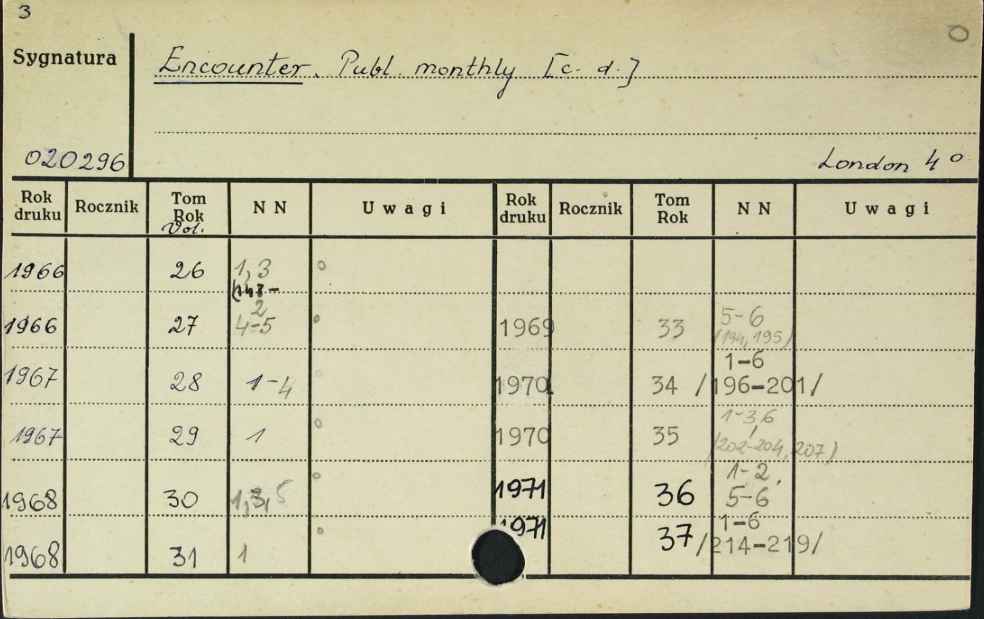 3
O
Sygnatura
Encounter. Publ. monthly [c. d.]
020296
London 4°
Rok druku Rocznik Tom Rok Vol. NN Uwagi Rok druku Rocznik Tom Rok NN Uwagi
1966 26 1,3
(148-
1966 27 2 4-5
1969 33 5-6 /194, 195/
1967 28 1-4
1970 34 1-6 /196-201/
1967 29 1
1970 35 1-3,6 /202-204, 207/
1968 30 1,3,5
1971 36 1-2, 5-6
1968 31 1
1971 37 1-6 /214-219/